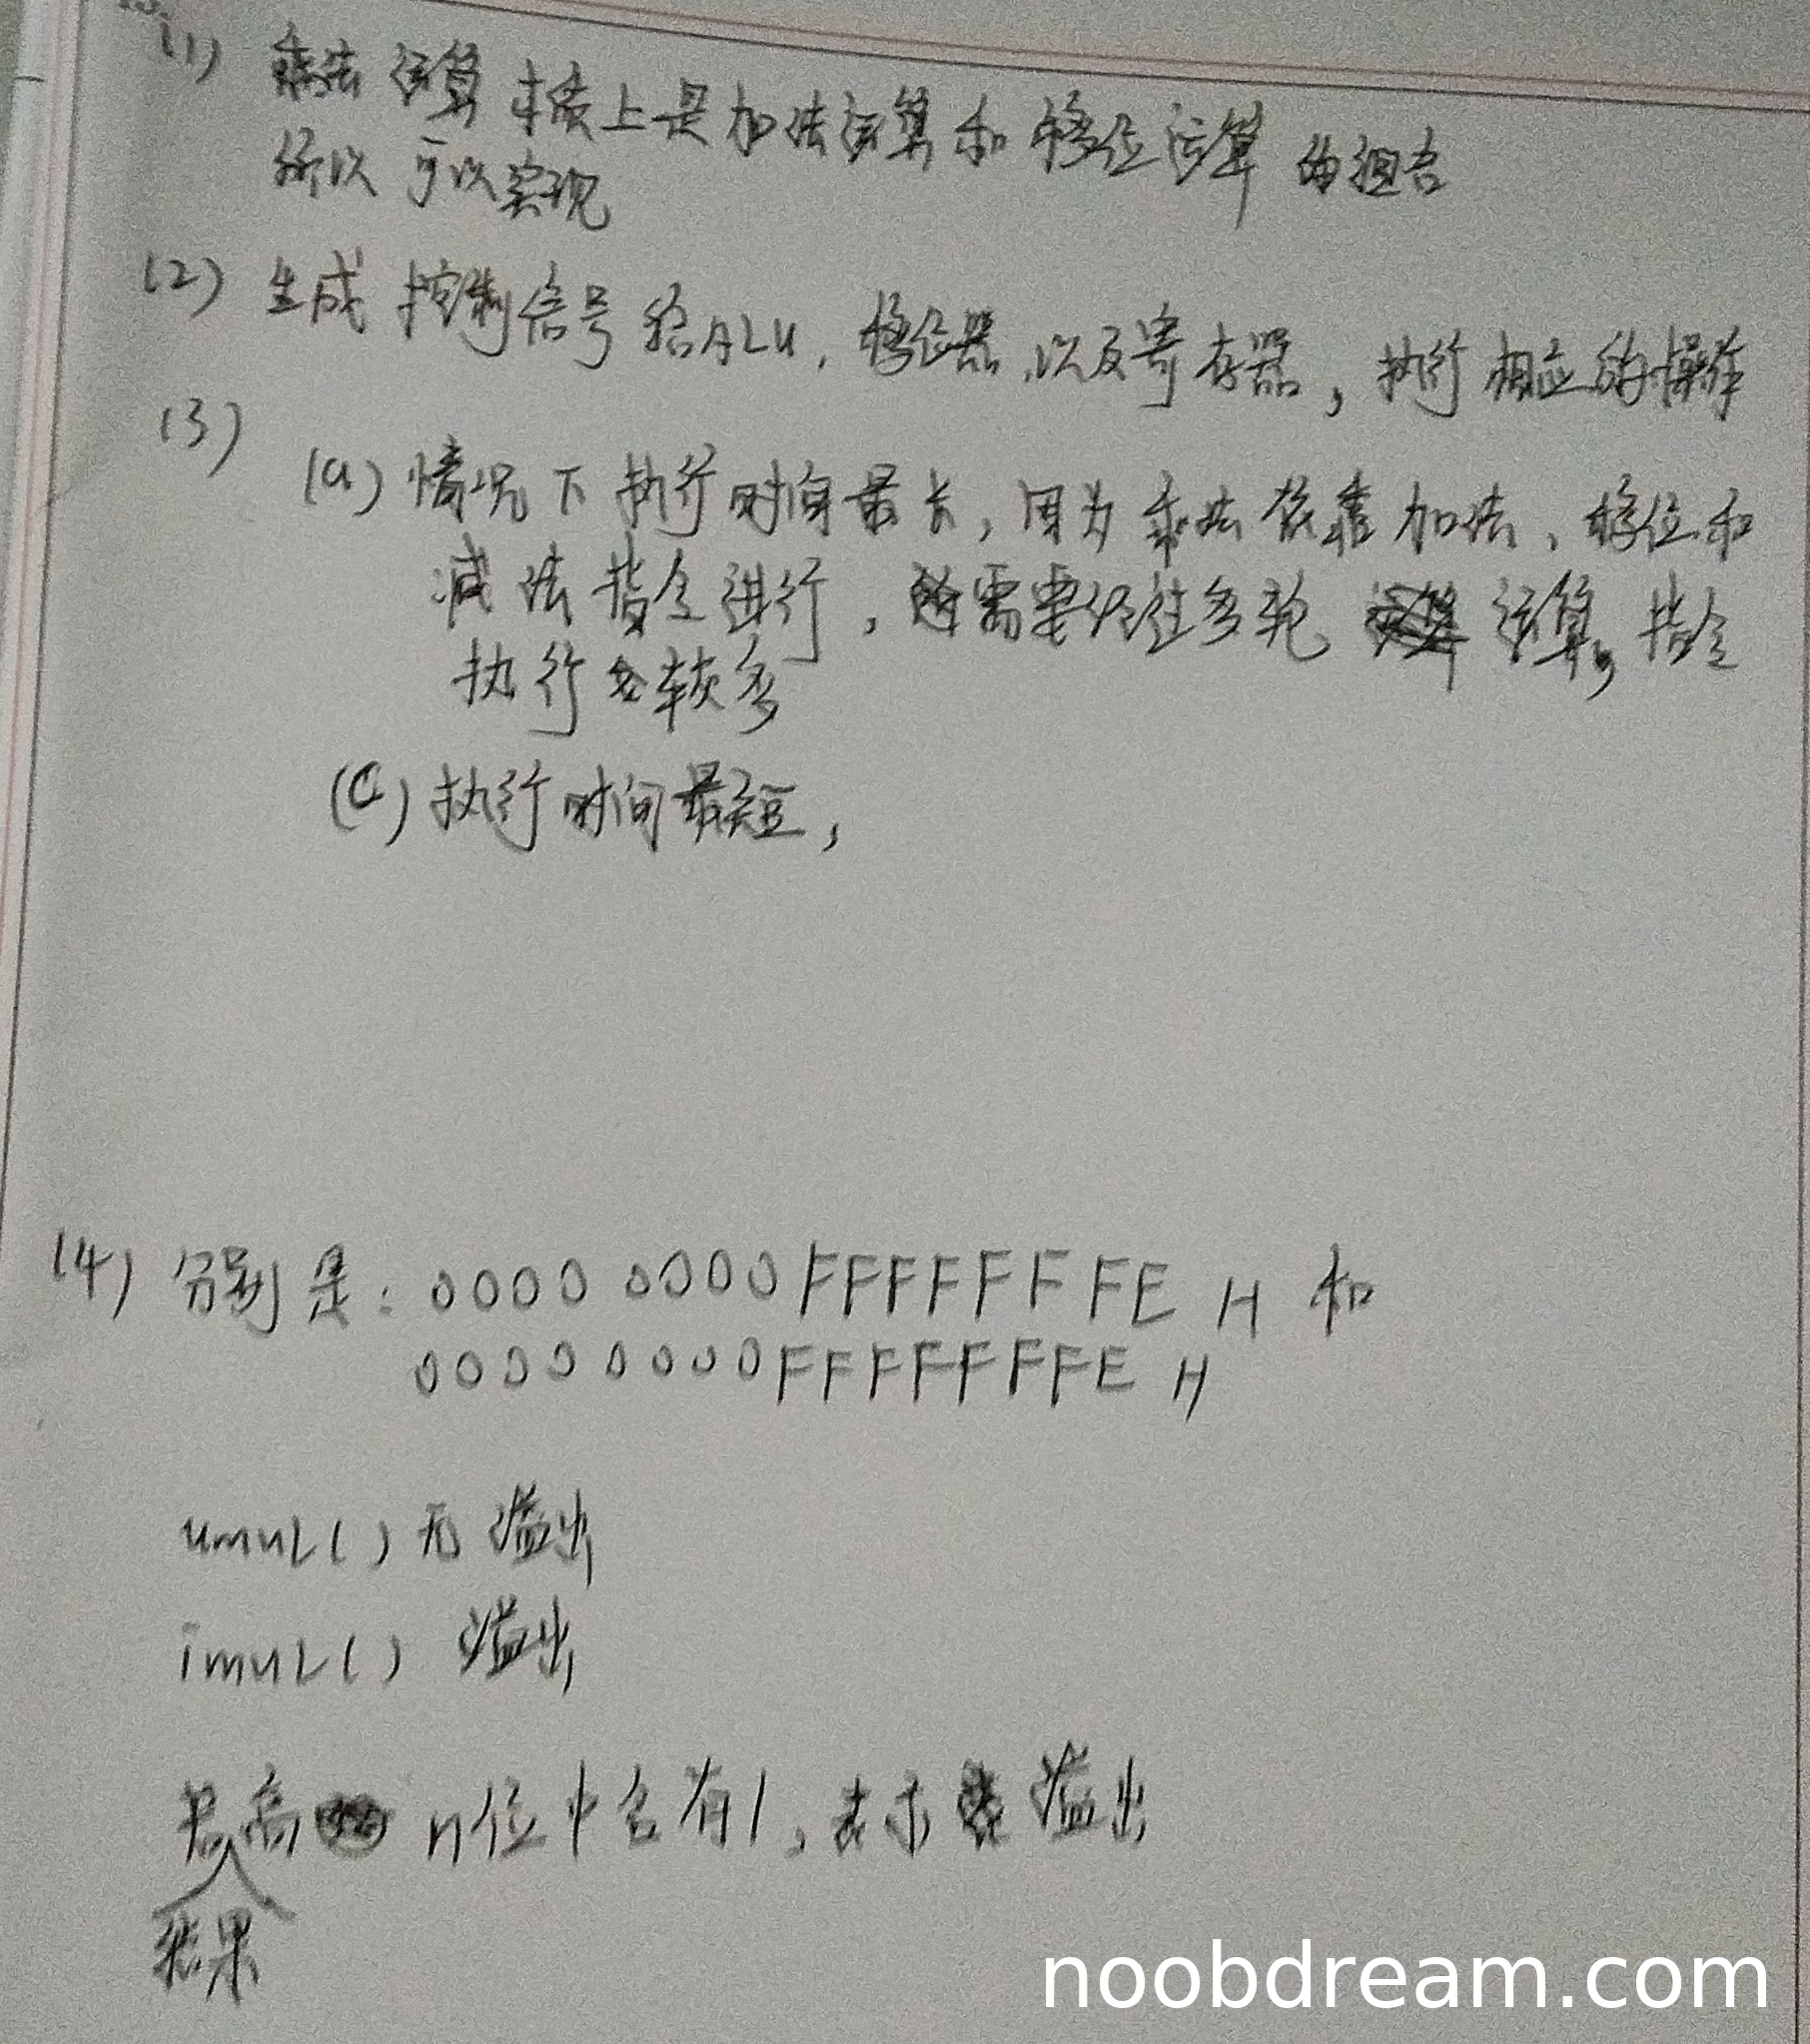 (1) 乘法运算本质上是加法运算和移位运算的组合
所以可以实现
(2) 生成控制信号给ALU、移位器、以及寄存器，执行相应的操作
(3)
(a) 情况下执行时间最长，因为乘法依靠加法、移位和
减法指令进行，需要经过多轮运算，指令
执行较多
(c) 执行时间最短，
(4) 分别是：0000 0000FFFFFFFE H 和
0000 0000FFFFFFFE H
umul() 无溢出
imul() 溢出
若高n位中含有1，表示溢出
结果
noobdream.com